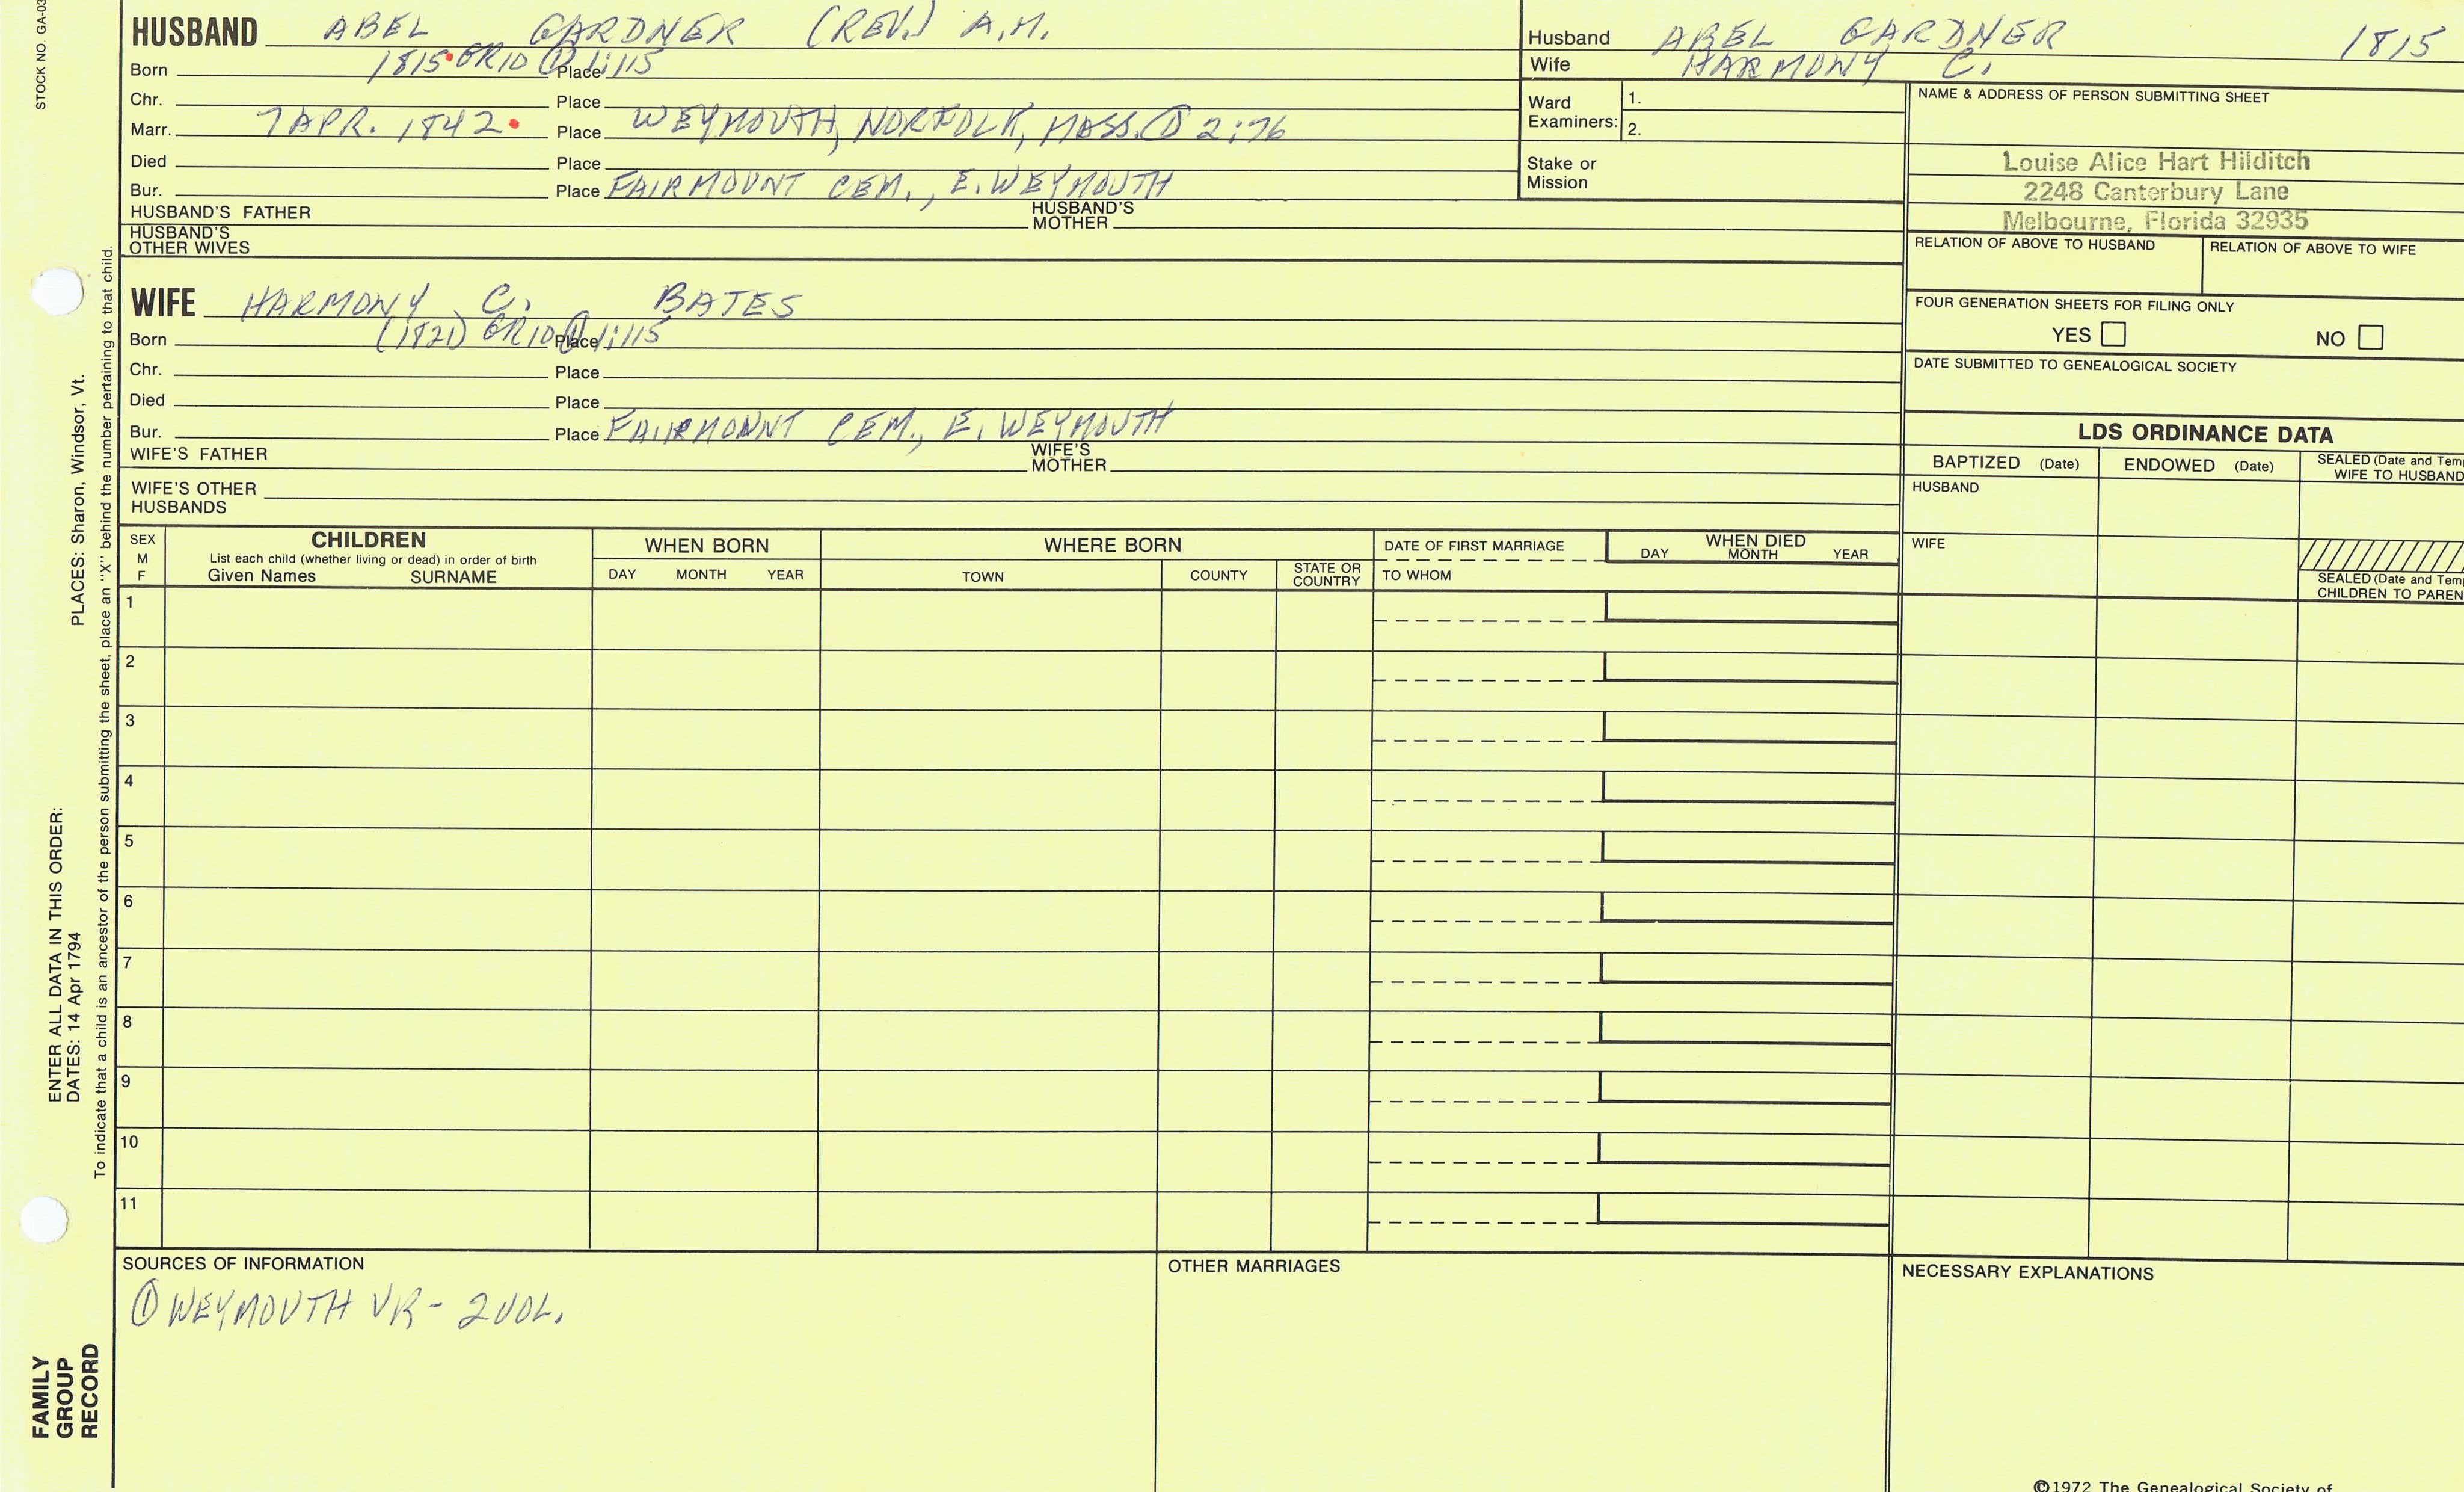 STOCK NO. GA-03
HUSBAND ABEL GARDNER (REV.) A.M.
Born 1815 GR10 ① 1:115 Place
Chr. Place
Marr. 7 APR. 1842 Place WEYMOUTH, NORFOLK, MASS. ① 2:76
Died Place
Bur. Place FAIRMOUNT CEM., E. WEYMOUTH
HUSBAND'S FATHER HUSBAND'S MOTHER
HUSBAND'S OTHER WIVES
Husband ABEL GARDNER 1815
Wife HARMONY C.
Ward Examiners: 1.
2.
Stake or Mission
NAME & ADDRESS OF PERSON SUBMITTING SHEET
Louise Alice Hart Hilditch
2248 Canterbury Lane
Melbourne, Florida 32935
RELATION OF ABOVE TO HUSBAND RELATION OF ABOVE TO WIFE
FOUR GENERATION SHEETS FOR FILING ONLY
YES NO
DATE SUBMITTED TO GENEALOGICAL SOCIETY
WIFE HARMONY C. BATES
Born (1821) GR10 ① 1:115 Place
Chr. Place
Died Place
Bur. Place FAIRMONNT CEM., E. WEYMOUTH
WIFE'S FATHER WIFE'S MOTHER
WIFE'S OTHER HUSBANDS
LDS ORDINANCE DATA
BAPTIZED (Date) ENDOWED (Date) SEALED (Date and Tem
WIFE TO HUSBAND
HUSBAND
WIFE
SEALED (Date and Tem
CHILDREN TO PAREN
SEX M F
CHILDREN
List each child (whether living or dead) in order of birth
Given Names SURNAME
WHEN BORN
DAY MONTH YEAR
WHERE BORN
TOWN COUNTY STATE OR COUNTRY
DATE OF FIRST MARRIAGE
TO WHOM
WHEN DIED
DAY MONTH YEAR
1
2
3
4
5
6
7
8
9
10
11
SOURCES OF INFORMATION
① WEYMOUTH VR - 2 VOL.
OTHER MARRIAGES
NECESSARY EXPLANATIONS
©1972 The Genealogical Society of
PLACES: Sharon, Windsor, Vt.
ENTER ALL DATA IN THIS ORDER:
DATES: 14 Apr 1794
To indicate that a child is an ancestor of the person submitting the sheet, place an "X" behind the number pertaining to that child.
FAMILY
GROUP
RECORD